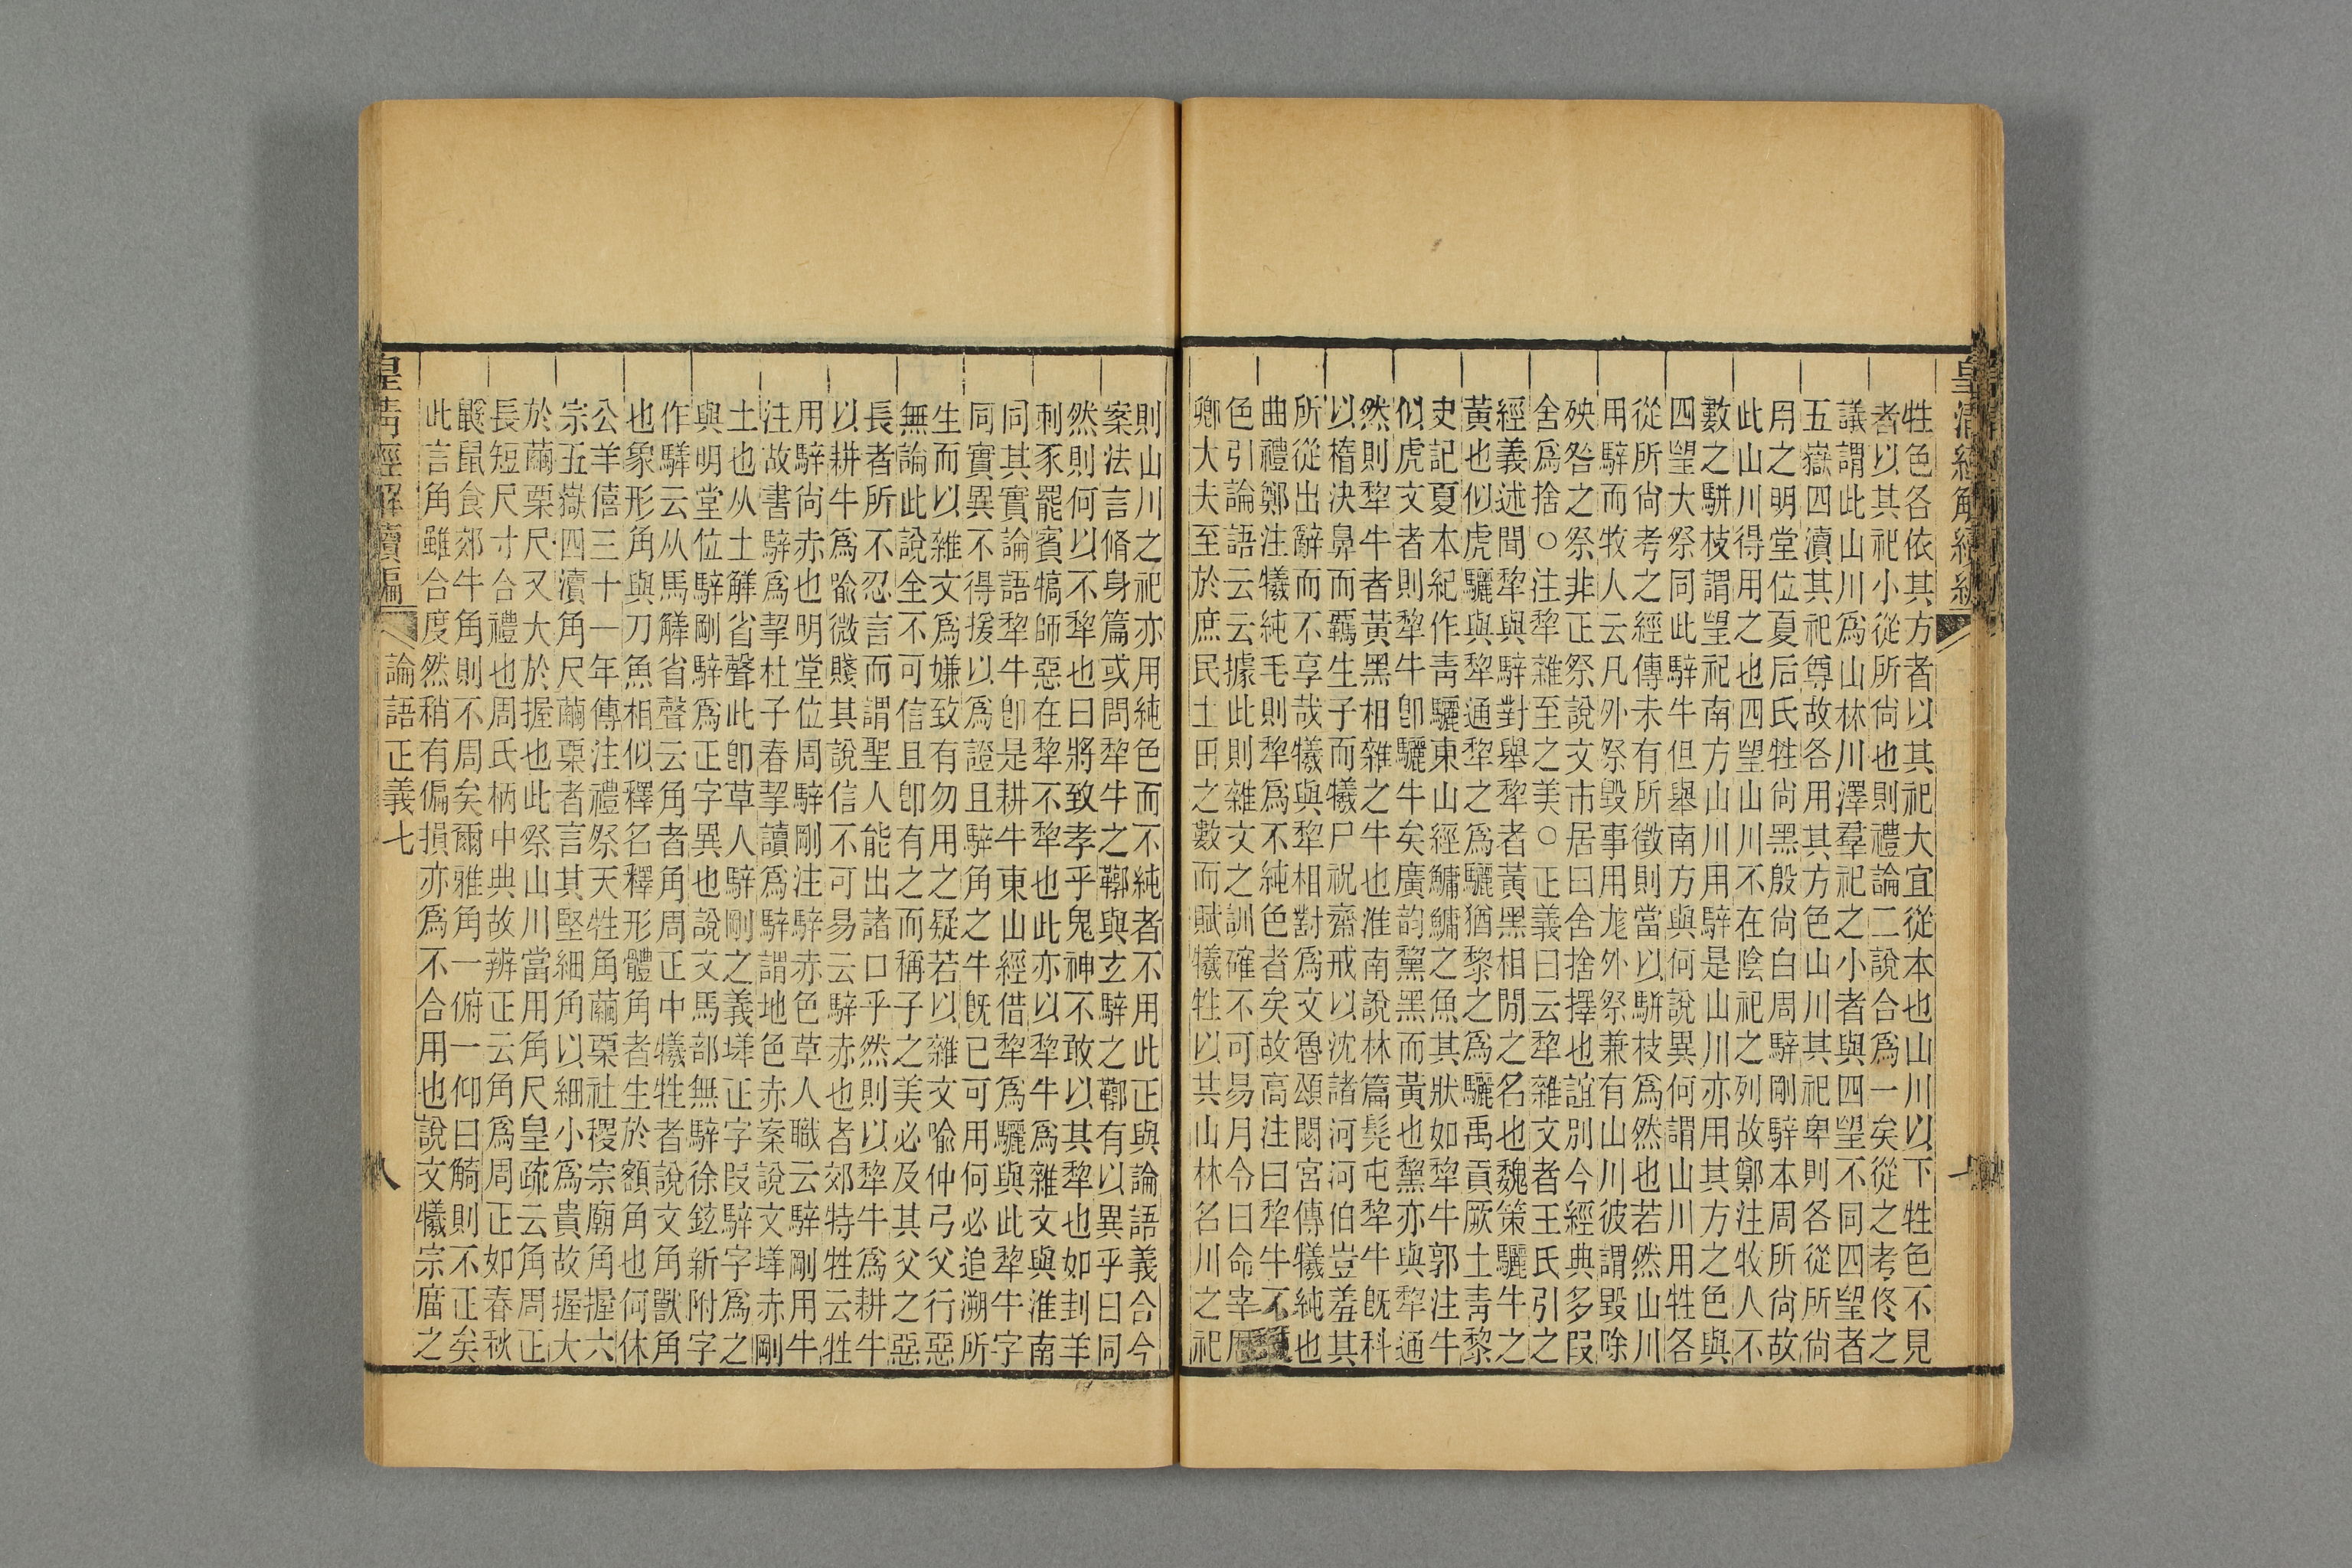 皇清經解續編
牲色各依其方者以其祀大宜從本也山川以下牲色不見
者以其祀小從所尙也則禮論二說合爲一矣從之考佟之
議謂此山川爲山林川澤羣祀之小者與四望不同四望者
五嶽四瀆其祀尊故各用其方色山川其祀卑則各從所尙
用之明堂位夏后氏牲尙黑殷尙白周騂剛騂本周所尙故
此山川得用之也四望山川不在陰祀之列故鄭注牧人不
數之騈枝謂望祀南方山川用騂是山川亦用其方之色與
四望大祭同此騂牛但舉南方與何說異何謂山川用牲各
從所尙考之經傳未有所徵則當以騈枝爲然也若然山川
用騂而牧人云凡外祭毀事用尨外祭兼有山川彼謂毀除
殃咎之祭非正祭說文市居曰舍捨擇也誼別今經典多叚
舍爲捨○注犂雜至之美○正義曰云犂雜文者王氏引之
經義述聞犂與騂對舉犂者黃黑相閒之名也魏策驪牛之
黃也似虎驪與犂通犂之爲驪猶黎之爲驪禹貢厥土青黎
史記夏本紀作青驪東山經鱅鱅之魚其狀如犂牛郭注牛
似虎文者則犂牛卽驪牛矣廣韵黧黑而黃也黧亦與犂通
然則犂牛者黃黑相雜之牛也淮南說林篇髡屯犂牛旣科
以橢決鼻而羈生子而犧尸祝齋戒以沈諸河河伯豈羞其
所從出辭而不享哉犧與犂相對爲文魯頌閟宮傳犧純也
曲禮鄭注犧純毛則犂爲不純色者矣故高注曰犂牛不
色引論語云云據此則雜文之訓確不可易月令曰命宰
鄉大夫至於庶民土田之數而賦犧牲以共山林名川之祀
則山川之祀亦用純色而不純者不用此正與論語義合今
案法言脩身篇或問犂牛之鞹與玄騂之鞹有以異乎曰同
然則何以不犂也曰將致孝乎鬼神不敢以其犂也如刲羊
刺豕罷賓犒師惡在犂不犂也此亦以犂牛爲雜文與淮南
同其實論語犂牛卽是耕牛東山經借犂爲驪與此犂牛字
同實異不得援以爲證且騂角之牛旣已可用何必追溯所
生而以雜文爲嫌致有勿用之疑若以雜文喻仲弓父行惡
無論此說全不可信且卽有之而稱子之美必及其父之惡
長者所不忍言而謂聖人能出諸口乎然則以犂牛爲耕牛
以耕牛爲喻微賤其說信不可易云騂赤也者郊特牲云牲
用騂尙赤也明堂位周騂剛注騂赤色草人職云騂剛用牛
注故書騂爲挈杜子春挈讀爲騂謂地色赤案說文垟赤剛
土也从土觲省聲此卽草人騂剛之義垟正字叚騂字爲之
與明堂位騂剛騂爲正字異也說文馬部無騂徐鉉新附字
作驛云从馬觲省聲云角者角周正中犧牲者說文角獸角
也象形角與刀魚相似釋名釋形體角者生於額角也何休
公羊僖三十一年傳注禮祭天牲角繭栗社稷宗廟角握六
宗五嶽四瀆角尺繭栗者言其堅細角以細小爲貴故握大
於繭栗尺又大於握也此祭山川當用角尺皇疏云角周正
長短尺寸合禮也周氏柄中典故辨正云角爲周正如春秋
鼷鼠食郊牛角則不周矣爾雅角一俯一仰曰觭則不正矣
此言角雖合度然稍有偏損亦爲不合用也說文犧宗廟之
皇清經解續編
論語正義七
八